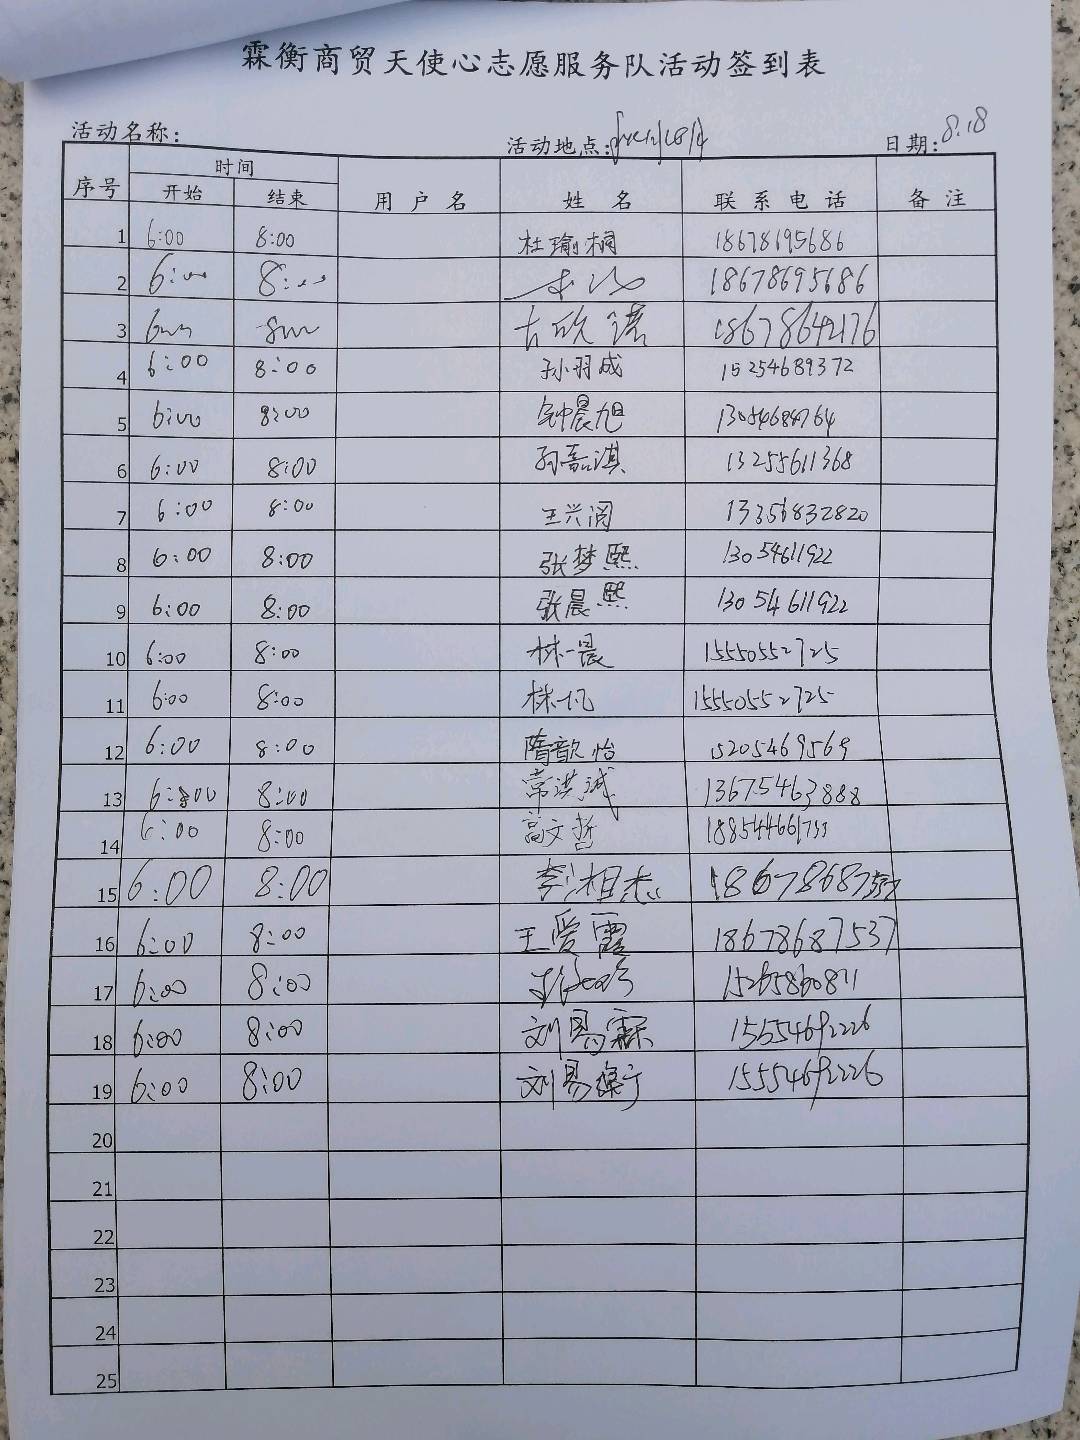 霖衡商贸天使心志愿服务队活动签到表
活动名称: 活动地点: 日期: 8.18
序号 时间 用户名 姓名 联系电话 备注
开始 结束
1 6:00 8:00 杜瑜桐 18678195686
2 6:00 8:00 18678695686
3 6:00 8:00 古欣诺 18678642176
4 6:00 8:00 孙羽成 15254689372
5 6:00 8:00 钟晨旭
6 6:00 8:00 孙嘉淇 13255611368
7 6:00 8:00 王兴阔 13356832820
8 6:00 8:00 张梦熙 13054611922
9 6:00 8:00 张晨熙 13054611922
10 6:00 8:00 林一晨 15550552725
11 6:00 8:00 林一凡 15550552725
12 6:00 8:00 隋歆怡 15205469569
13 6:00 8:00 常洪诚 13675463888
14 6:00 8:00 高文哲
15 6:00 8:00 李相杰
16 6:00 8:00 王爱霞 18678687537
17 6:00 8:00 15265860811
18 6:00 8:00 刘易霖 15554692226
19 6:00 8:00 刘易衡 15554692226
20
21
22
23
24
25